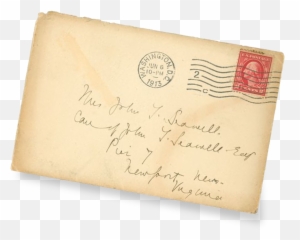 WASHINGTON, D.C.
JUN 6
10-PM
1913
2
C
Mrs John T. Seawell
Care of John T. Seawell-Esq
Pier 7
Newport News-
Virginia